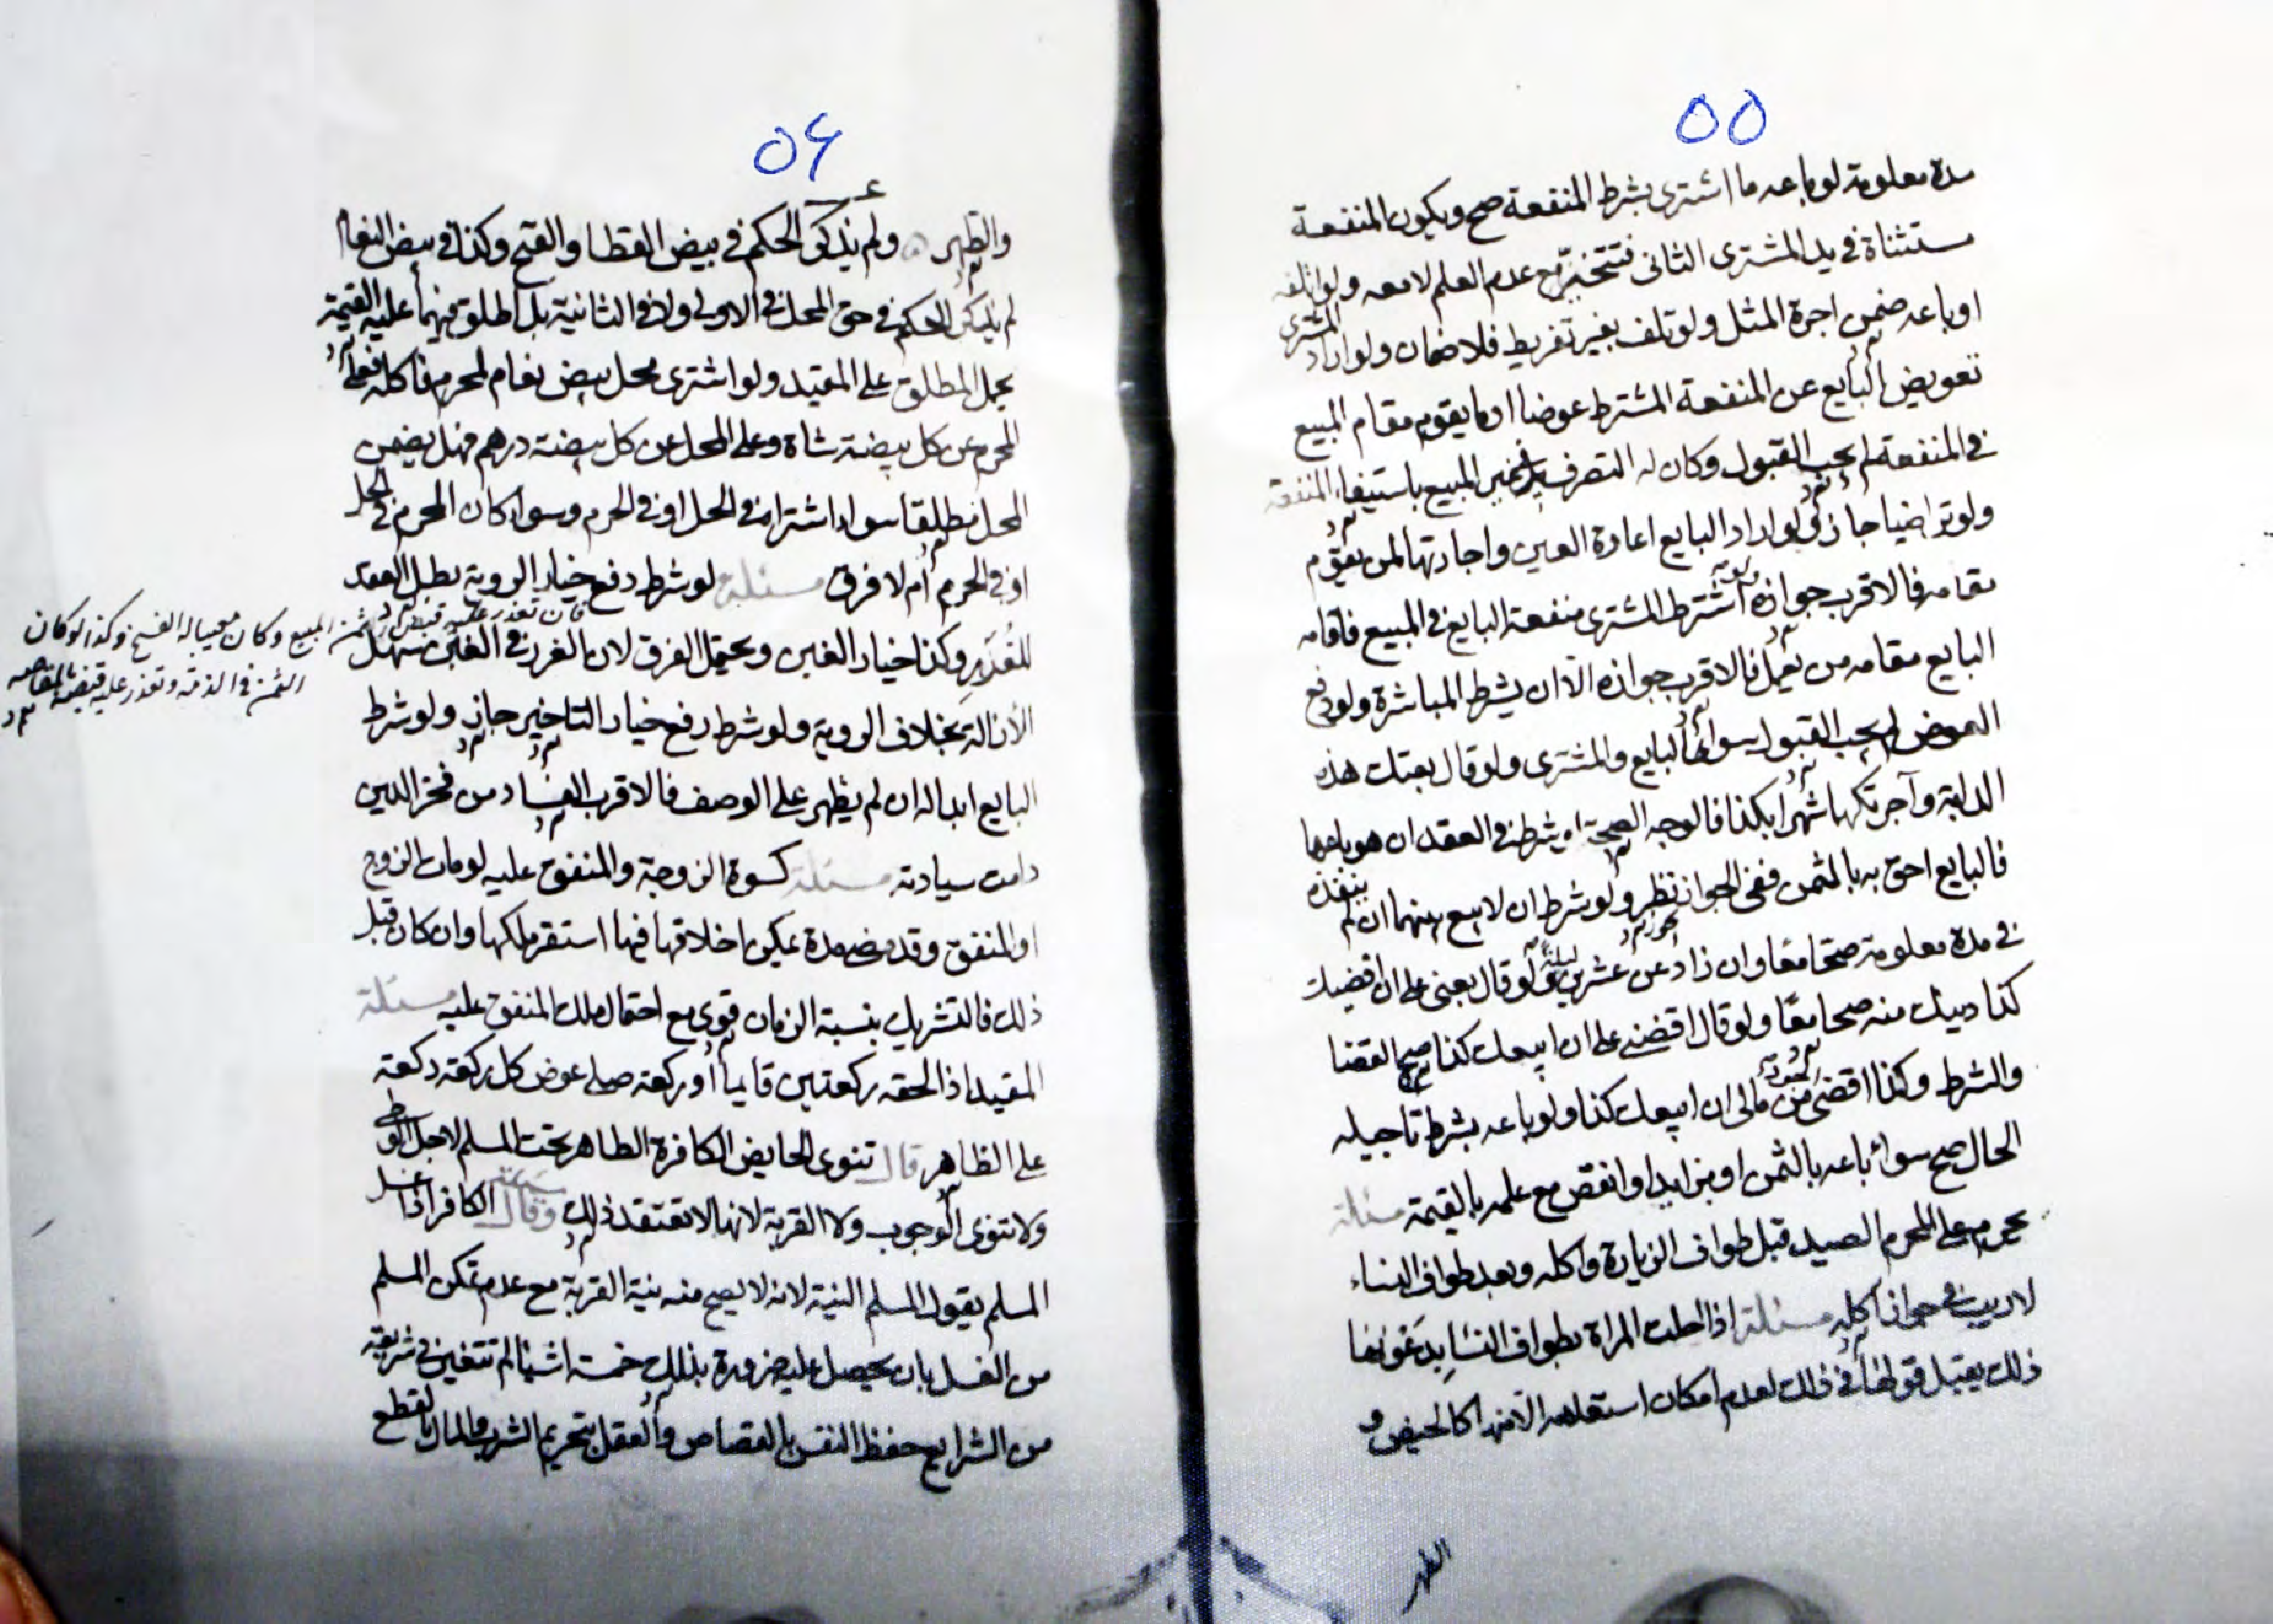 ٥٥
مدة معلومة لو باعه ما اشترى بشرط المنفعة صح ويكون المنفعة
مستثناة في يد المشترى الثانى فتتخير مع عدم العلم لا معه ولو اتلفه
او باعه ضمن اجرة المثل ولو تلف بغير تفريط فلا ضمان ولو اراد المشترى
تعويض البايع عن المنفعة المشترط عوضا او ما يقوم مقام المبيع
في المنفعة لم يجب القبول وكان له التصرف المبيع باستيفاء المنفعة
ولو تراضيا جاز ولو اراد البايع اعارة العين واجارتها لمن يقوم
مقامه فالاقرب جوازه اشترط المشترى منفعة البايع في المبيع فاقامه
البايع مقامه من يعمل فالاقرب جوازه الا ان يشرط المباشرة ولو دفع
العوض لم يجب القبول سواء البايع والمشترى ولو قال بعتك هذه
الدابة وآجرتكها شهرا بكذا فالوجه الصحة لو شرط في العقد ان هو باعها
فالبايع احق به بالثمن ففى الجواز نظر ولو شرط ان لا بيع بينهما ان لم ينقده
في مدة معلومة صحا معا وان زاد عن عشرين ليلة ولو قال بعنى على ان اقضيك
كذا دينك منه صحا معا ولو قال اقضنى على ان ابيعك كذا صح القضا
والشرط وكذا اقضى من مالى ان ابيعك كذا ولو باعه بشرط تاجيله
الحال صح سواء باعه بالثمن او بزايد او انقص مع علمه بالقيمة مسئلة
يحرم على المحرم الصيد قبل طواف الزيارة واكله وبعد طواف النساء
لا ريب في جواز اكله مسئلة اذا احلت المراة بطواف النسا
ذلك يقبل قولها في ذلك لعدم امكان استعلامه الا منها كالحيض و
الطهر
٥٦
والطهر ولم يذكر الحكم في بيض القطا والقبج وكذا في بيض النعام
لم يذكر الحكم في حق المحل في الاولى ولا في الثانية بل اطلق فيهما عليه القيمة
يحمل المطلق على المقيد ولو اشترى محل بيض نعام لمحرم فاكله فعلى
المحرم عن كل بيضة شاة وعلى المحل عن كل بيضة درهم فهل يضمن
المحل مطلقا سواء اشتراه في الحل او في الحرم وسواء كان المحرم في الحل
او في الحرم ام لا فرق مسئلة لو شرط دفع خيار الروية بطل العقد
للغرر وكذا خيار الغبن ويحتمل الفرق لان الغرر في الغبن سهل
الازالة بخلاف الروية ولو شرط رفع خيار التاخير جاز ولو شرط
البايع ابداله ان لم يظهر على الوصف فالاقرب الفساد من فخر الدين
دامت سيادته مسئلة كسوة الزوجة والمنفق عليه لو مات الزوج
او المنفق وقد مضى مدة يمكن اخلاقها فيها استقر ملكها وان كان قبل
ذلك فالتشريك بنسبة الزمان قوى مع احتمال ملك المنفق عليه مسئلة
المقيد اذا لحقه ركعتين قايما او ركعة صلى عوض كل ركعة ركعة
على الظاهر قال تنوى الحايض الكافرة الطاهر تحت المسلم لاجل الوطى
ولا تنوى الوجوب ولا القربة لانها لا تعتقد ذلك وقال الكافر اذا غسل
المسلم يقول المسلم النية لانه لا يصح منه نية القربة مع عدم تمكن المسلم
من الغسل بان يحصل عليه ضرورة بذلك خمسة اشيا لم تتغير في شريعة
من الشرايع حفظ النفس بالقصاص والعقل بتحريم الشرب والمال بالقطع
فان تعذر عليه قبض ثمن المبيع وكان معيبا له الفسخ وكذا لو كان
الثمن في الذمة وتعذر عليه قبضه